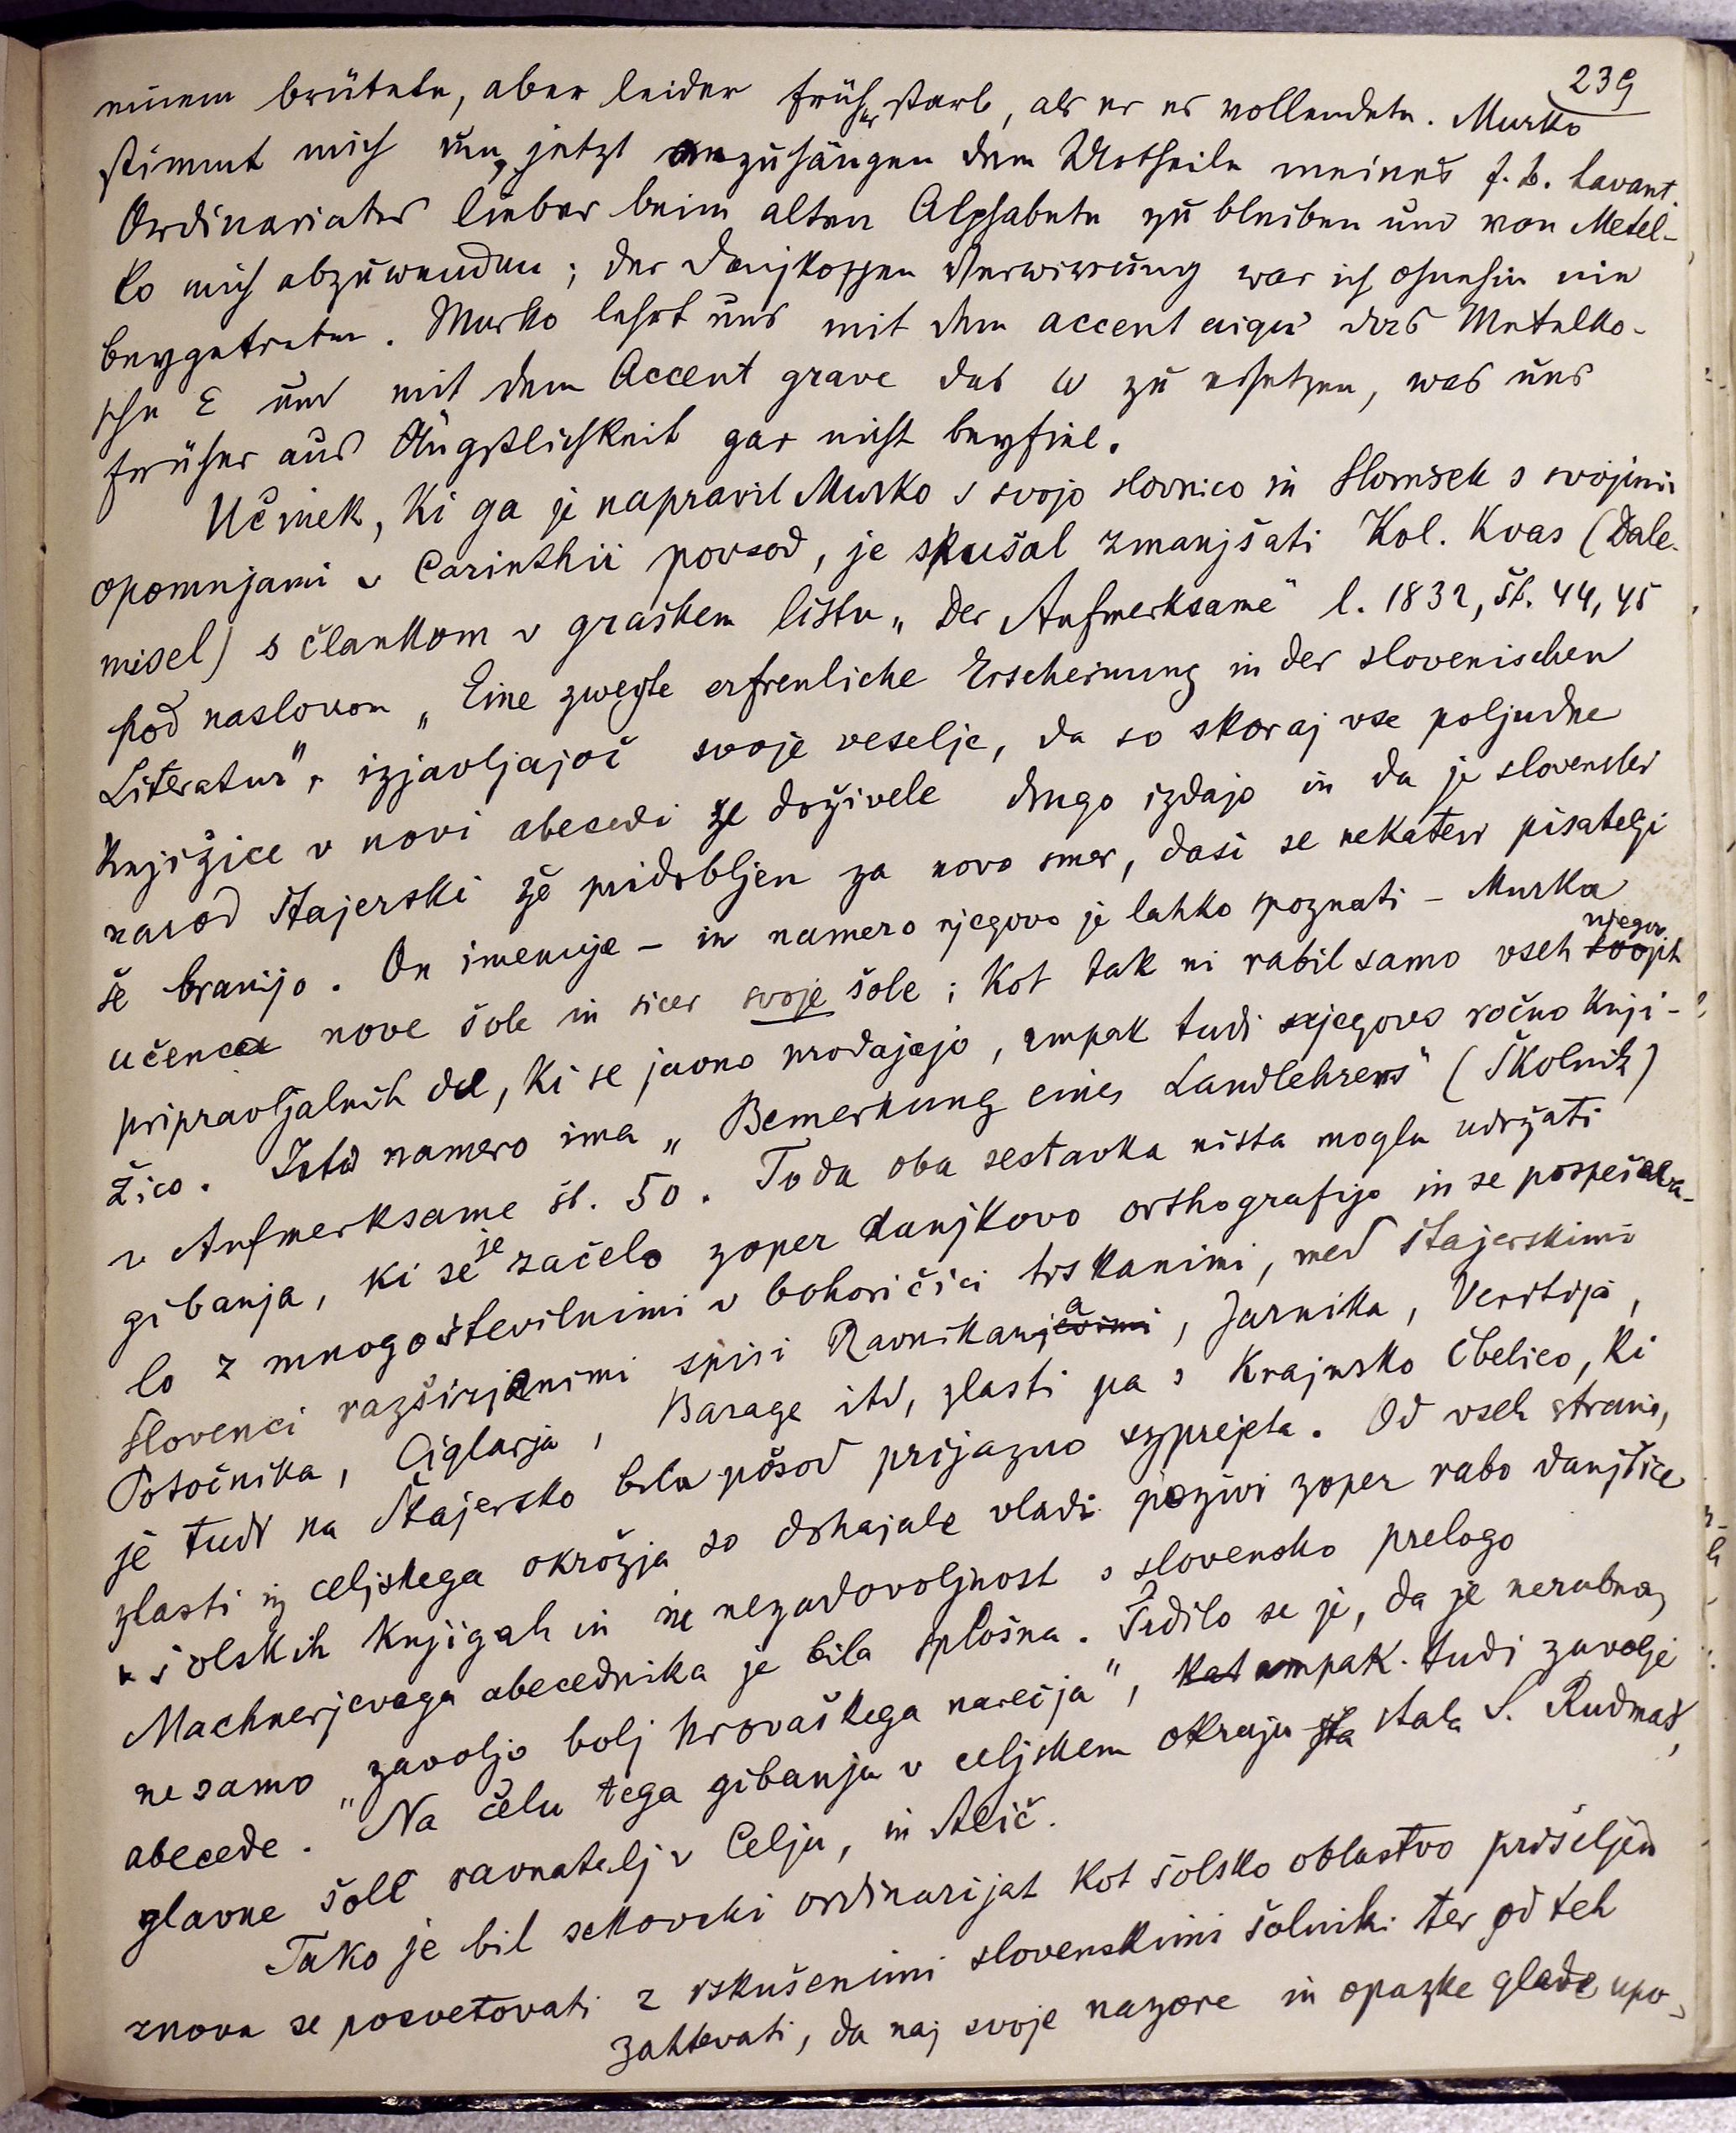 239
einem brütete, aber leider früher starb, als er es vollendete. Murko
stimmt mich um, jetzt anzuhängen dem Urtheile meines f. b. Lavant.
Ordinariates lieber beim alten Alphabete zu bleiben und von Metel-
ko mich abzuwenden; der Danjkoschen Verwirrung war ich ohnehin nie
beygetreten. Murko lehrt uns mit dem accent aigu das Metelko-
sche E und mit dem Accent grave das ω zu ersetzen, was uns
früher aus Ängstlichkeit gar nicht beyfiel.
Učinek, ki ga je napravil Murko s svojo slovnico in Slomšek s svojimi
opomnjami v Carinthii povsod, je skušal zmanjšati Kol. Kvas (Dale-
misel) s člankom v graškem listu „Der Aufmerksame" l. 1832, št. 44, 45
pod naslovom „Eine zweyte erfreuliche Erscheinung in der slovenischen
Literatur", izjavljajoč svoje veselje, da so skoraj vse poljudne
knjižice v novi abecedi že doživele drugo izdajo in da je slovenski
narod štajerski že pridobljen za novo smer, dasi se nekateri pisatelji
še branijo. On imenuje – in namero njegovo je lahko spoznati – Murka
učenca nove šole in sicer svoje šole; kot tak ni rabil samo vseh svojih njegov.
pripravljalnih del, ki se javno prodajajo, ampak tudi njegovo ročno knji-
žico. Isto namero ima „Bemerkung eines Landlehrers" (Školnik)
v Aufmerksame št. 50. Toda oba sestavka nista mogla udržati
gibanja, ki se je začelo zoper danjkovo orthografijo in se pospeševa-
lo z mnogoštevilnimi v bohoričici tiskanimi, med štajerskimi
Slovenci razširjenimi spisi Ravnikarja, Jarnika, Veritija,
Potočnika, Ciglarja, Barage itd, zlasti pa s Krajnsko Čbelico, ki
je tudi na Štajersko bila posod prijazno vzprejeta. Od vseh strani,
zlasti iz celjskega okrožja so dohajale vladi pozivi zoper rabo danjčice
v šolskih knjigah in nezadovoljnost s slovensko prelogo
Machnerjevega abecednika je bila splošna. Trdilo se je, da je nerabna,
ne samo „zavoljo bolj hrovaškega narečja", kot ampak tudi zavolje
abecede. Na čelu tega gibanja v celjskem okraju sta stala S. Rudmaš,
glavne šole ravnatelj v Celju, in Alič.
Tako je bil sekovski ordinarijat kot šolsko oblastvo prisiljen
znova se posvetovati z izkušenimi slovenskimi šolniki ter od teh
zahtevati, da naj svoje nazore in opazke glede upo-